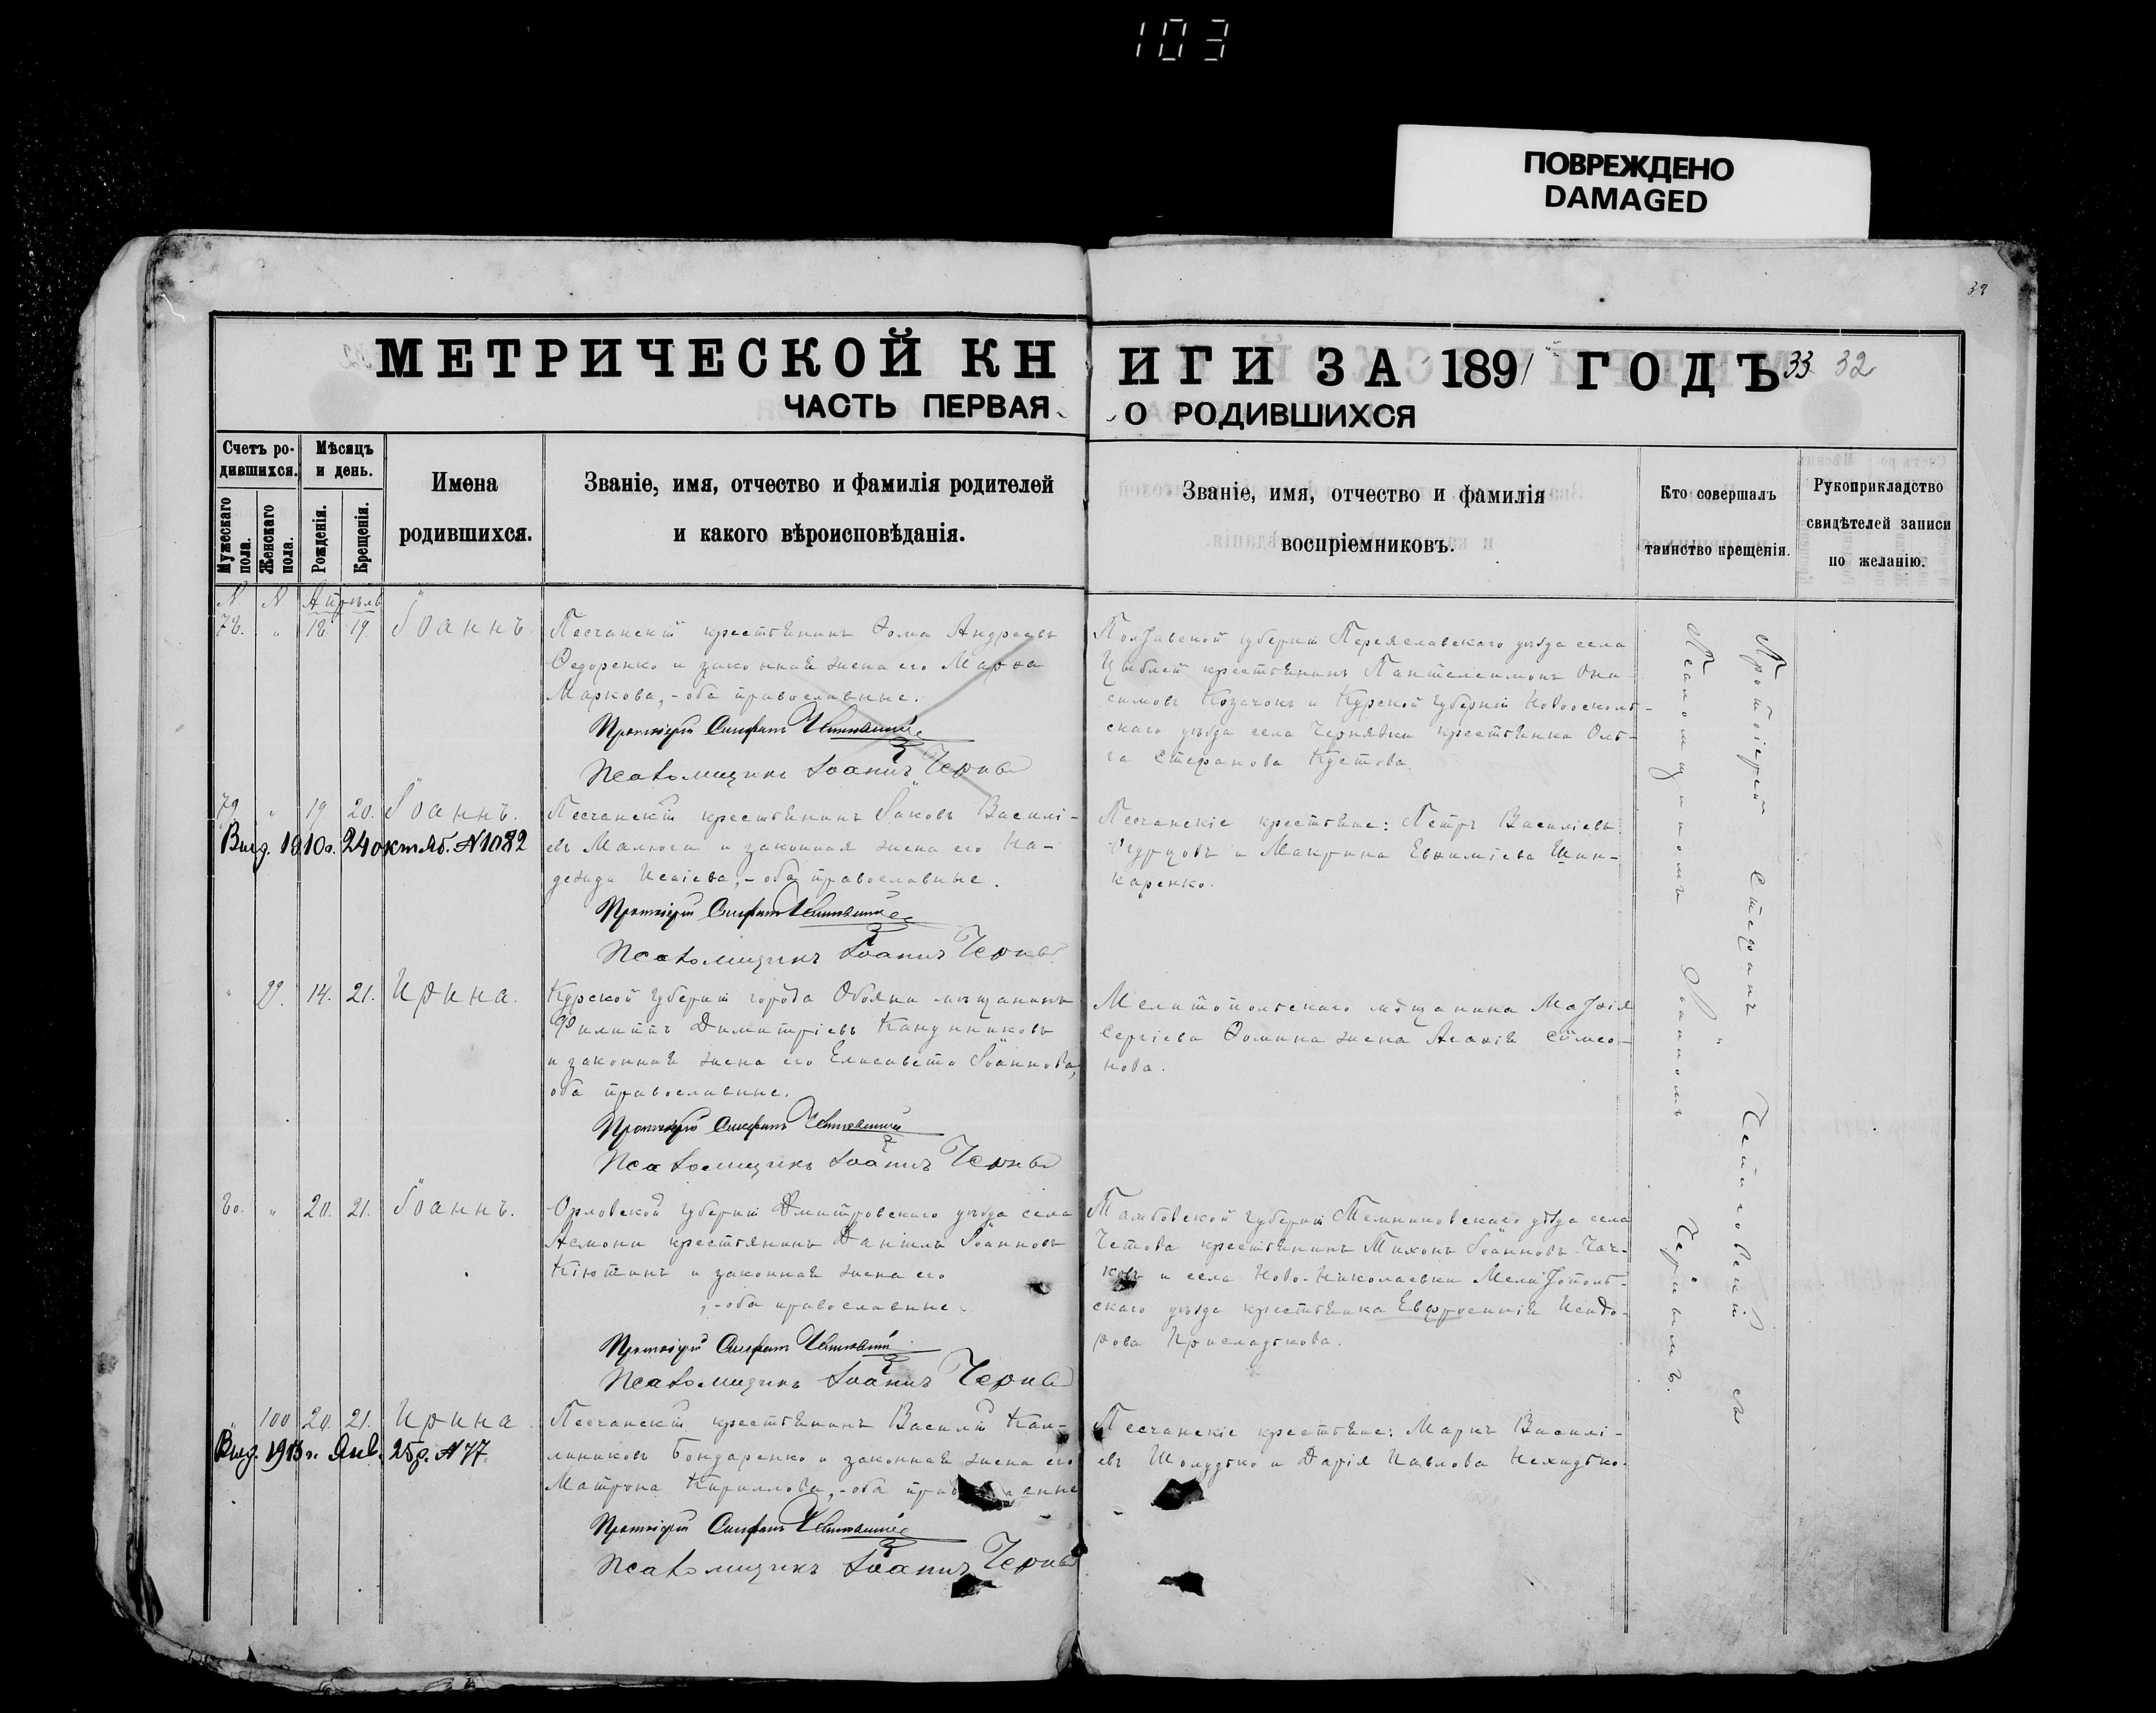 103
ПОВРЕЖДЕНО
DAMAGED
32
МЕТРИЧЕСКОЙ КНИГИ ЗА 1891 ГОДЪ 33 32
ЧАСТЬ ПЕРВАЯ О РОДИВШИХСЯ
Счетъ родившихся.
Мужескаго пола.
Женскаго пола.
Мѣсяцъ и день.
Рожденія.
Крещенія.
Имена
родившихся.
Званіе, имя, отчество и фамилія родителей
и какого вѣроисповѣданія.
Званіе, имя, отчество и фамилія
воспріемниковъ.
Кто совершалъ
таинство крещенія.
Рукоприкладство
свидѣтелей записи
по желанію.
N. N Апрѣль
78. " 18. 19. Іоаннъ.
Песчанскій крестьянинъ Ѳома Андреевъ
Федоренко и законная жена его Марѳа
Маркова, - оба православные.
Протоіерей Стефанъ
Псаломщикъ Іоаннъ Черный
Полтавской губерніи Переяславскаго уѣзда села
Цыблей крестьянинъ Пантелеимонъ Они-
симовъ Козачокъ и Курской губерніи Новооскольс-
скаго уѣзда села Чернявки крестьянка Оль-
га Стефанова Кустова.
79. " 19. 20. Іоаннъ.
Выд. 1910г. 24 октяб. №1082
Песчанскій крестьянинъ Іаковъ Василі-
евъ Малюга и законная жена его На-
дежда Исаіева, - оба православные.
Протоіерей Стефанъ
Псаломщикъ Іоаннъ Черный
Песчанскіе крестьяне: Петръ Василіевъ
Огурцовъ и Макрина Евѳиміева Шин-
каренко.
" 99. 14. 21. Ирина.
Курской губерніи города Обояни мѣщанинъ
Филиппъ Димитріевъ Канунниковъ
и законная жена его Елисавета Іоаннова,
оба православные.
Протоіерей Стефанъ
Псаломщикъ Іоаннъ Черный
Мелитопольскаго мѣщанина
Сергіева Ѳомина жена Агаѳія Сѵмео-
нова.
80. " 20. 21. Іоаннъ.
Орловской губерніи Дмитровскаго уѣзда села
Асмони крестьянинъ Даніилъ Іоанновъ
Кіютинъ и законная жена его
, - оба православные.
Протоіерей Стефанъ
Псаломщикъ Іоаннъ Черный
Тамбовской губерніи Темниковскаго уѣзда села
Четова крестьянинъ Тихонъ Іоанновъ Чач-
ковъ и села Ново-Николаевки Мелитополь-
скаго уѣзда крестьянка Евфросинія Исидо-
рова Присладькова.
" 100 20. 21. Ирина.
Выд. 1913г. Янв. 25д. №77.
Песчанскій крестьянинъ Василій Кал-
линиковъ Бондаренко и законная жена его
Матрона Кириллова, - оба
Протоіерей Стефанъ
Псаломщикъ Іоаннъ Черный
Песчанскіе крестьяне: Маркъ Василі-
евъ Шолудько и Дарія Павлова Нехидько.
Протоіерей Стефанъ съ
Псаломщикомъ Іоанномъ Чернымъ.